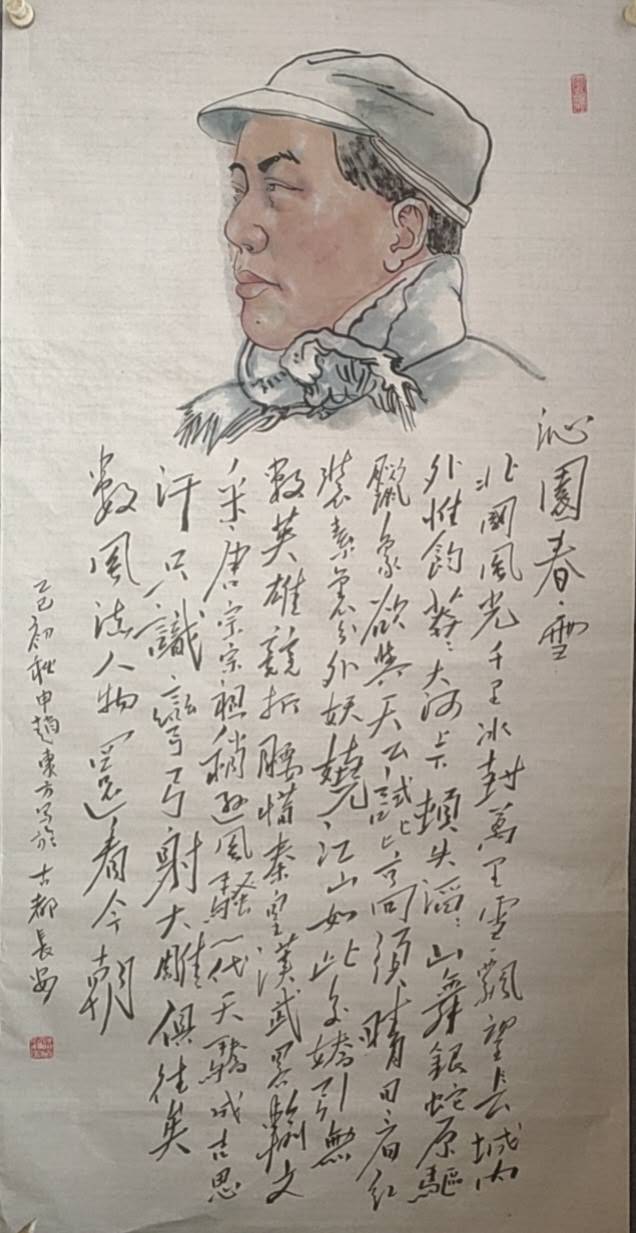 沁園春雪
北國風光千里冰封萬里雪飄望長城内
外惟餘莽〻大河上下頓失滔〻山舞銀蛇原驅
臘象欲與天公試比高須晴日看紅
裝素裹分外妖嬈江山如此多嬌引無
數英雄競折腰惜秦皇漢武畧輸文
采唐宗宋祖稍遜風騷一代天驕成吉思
汗只識彎弓射大雕俱往矣
數風流人物還看今朝
乙巳初秋申趙東方写於古都長安